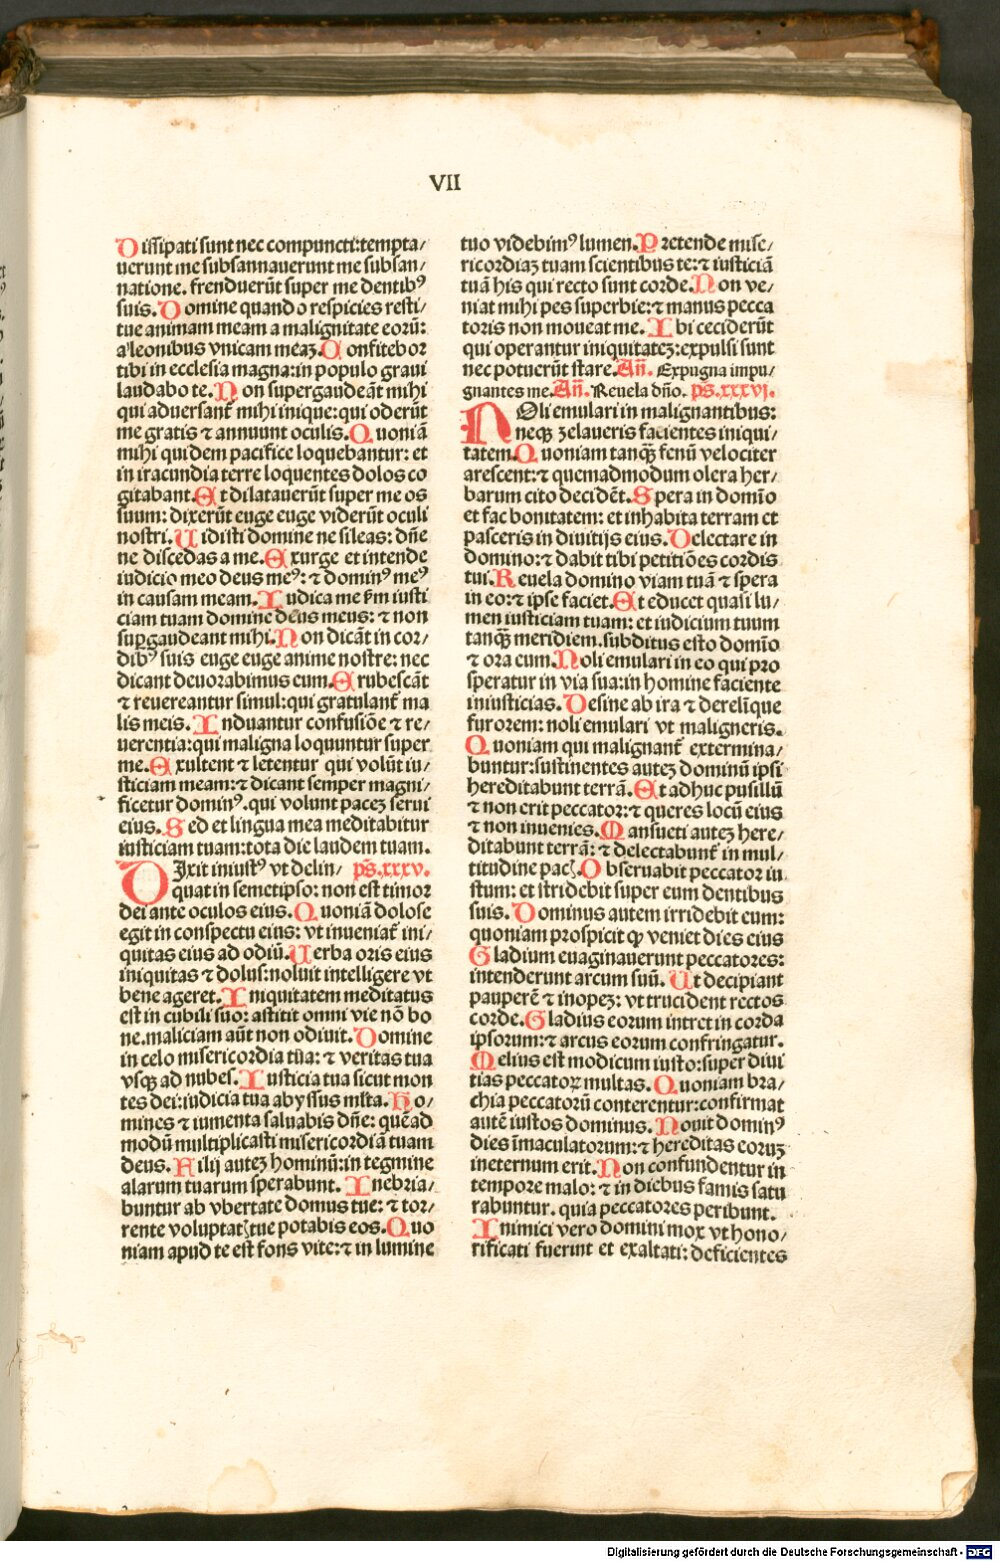 VII
Dissipati sunt nec compuncti:tempta/
uerunt me subsannauerunt me subsan/
natione. frenduerūt super me dentibꝰ
suis. Domine quando respicies resti/
tue animam meam a malignitate eorū:
a leonibus vnicam meaꝫ. Confitebor
tibi in ecclesia magna:in populo graui
laudabo te. Non supergaudeāt mihi
qui aduersant᷑ mihi inique:qui oderūt
me gratis ⁊ annuunt oculis. Quoniā
mihi quidem pacifice loquebantur: et
in iracundia terre loquentes dolos co
gitabant. Et dilatauerūt super me os
suum: dixerūt euge euge viderūt oculi
nostri. Uidisti domine ne sileas: dn̄e
ne discedas a me. Exurge et intende
iudicio meo deus meꝰ: ⁊ dominꝰ meꝰ
in causam meam. Iudica me ẜm iusti
ciam tuam domine deus meus: ⁊ non
suꝑgaudeant mihi. Non dicāt in cor/
dibꝰ suis euge euge anime nostre: nec
dicant deuorabimus eum. Erubescāt
⁊ reuereantur simul:qui gratulant᷑ ma
lis meis. Induantur confusiōe ⁊ re/
uerentia:qui maligna loquuntur super
me. Exultent ⁊ letentur qui volūt iu/
sticiam meam:⁊ dicant semper magni/
ficetur dominꝰ. qui volunt paceꝫ serui
eius. Sed et lingua mea meditabitur
iusticiam tuam:tota die laudem tuam.
DIxit iniustꝰ vt delin/ ps̄.xxxv.
quat in semetipso: non est timor
dei ante oculos eius. Quoniā dolose
egit in conspectu eius: vt inueniat᷑ ini/
quitas eius ad odiū. Uerba oris eius
iniquitas ⁊ dolus:noluit intelligere vt
bene ageret. Iniquitatem meditatus
est in cubili suo: astitit omni vie nō bo
ne.maliciam aūt non odiuit. Domine
in celo misericordia tūa: ⁊ veritas tua
vsqꝫ ad nubes. Iusticia tua sicut mon
tes dei:iudicia tua abyssus ml̄ta. Ho/
mines ⁊ iumenta saluabis dn̄e: quēad
modū multiplicasti misericordiā tuam
deus. Filij auteꝫ hominū:in tegmine
alarum tuarum sperabunt. Inebria/
buntur ab vbertate domus tue: ⁊ tor/
rente voluptatꝭ tue potabis eos. Quo
niam apud te est fons vite:⁊ in lumine
tuo videbimꝰ lumen. Pretende mise/
ricordiaꝫ tuam scientibus te:⁊ iusticiā
tuā his qui recto sunt corde. Non ve/
niat mihi pes superbie:⁊ manus pecca
toris non moueat me. Ibi ceciderūt
qui operantur iniquitateꝫ:expulsi sunt
nec potuerūt stare. An̄. Expugna impu/
gnantes me. An̄. Reuela dn̄o. ps̄.xxxvi.
NOli emulari in malignantibus:
neqꝫ zelaueris facientes iniqui/
tatem. Quoniam tanqꝫ fenū velociter
arescent:⁊ quemadmodum olera her/
barum cito decidēt. Spera in domīo
et fac bonitatem: et inhabita terram et
pasceris in diuitijs eius. Delectare in
domino:⁊ dabit tibi petitiōes cordis
tui. Reuela domino viam tuā ⁊ spera
in eo:⁊ ipse faciet. Et educet quasi lu/
men iusticiam tuam: et iudicium tuum
tanqꝫ meridiem.subditus esto domīo
⁊ ora eum. Noli emulari in eo qui pro
speratur in via sua:in homine faciente
iniusticias. Desine ab ira ⁊ derelīque
furorem: noli emulari vt maligneris.
Quoniam qui malignant᷑ extermina/
buntur:sustinentes auteꝫ dominū ipsi
hereditabunt terrā. Et adhuc pusillū
⁊ non erit peccator:⁊ queres locū eius
⁊ non inuenies. Mansueti auteꝫ here/
ditabunt terrā: ⁊ delectabunt᷑ in mul/
titudine pacꝭ. Obseruabit peccator iu/
stum: et stridebit super eum dentibus
suis. Dominus autem irridebit eum:
quoniam prospicit ꝙ veniet dies eius
Gladium euaginauerunt peccatores:
intenderunt arcum suū. Ut decipiant
pauperē ⁊ inopeꝫ: vt trucident rectos
corde. Gladius eorum intret in corda
ipsorum:⁊ arcus eorum confringatur.
Melius est modicum iusto:super diui
tias peccatoꝝ multas. Quoniam bra/
chia peccatorū conterentur:confirmat
autē iustos dominus. Nouit dominꝰ
dies īmaculatorum:⁊ hereditas eoruꝫ
ineternum erit. Non confundentur in
tempore malo: ⁊ in diebus famis satu
rabuntur. quia peccatores peribunt.
Inimici vero domini mox vt hono/
rificati fuerint et exaltati: deficientes
Digitalisierung gefördert durch die Deutsche Forschungsgemeinschaft - DFG